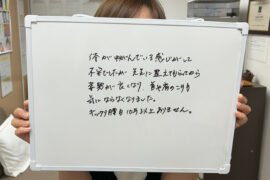 体が歪んでいる感じがして
不安でしたが 先生に整えてもらってから
姿勢が良くなり、首や肩のこりも
気にならなくなりました。
ギックリ腰も10年以上ありません。